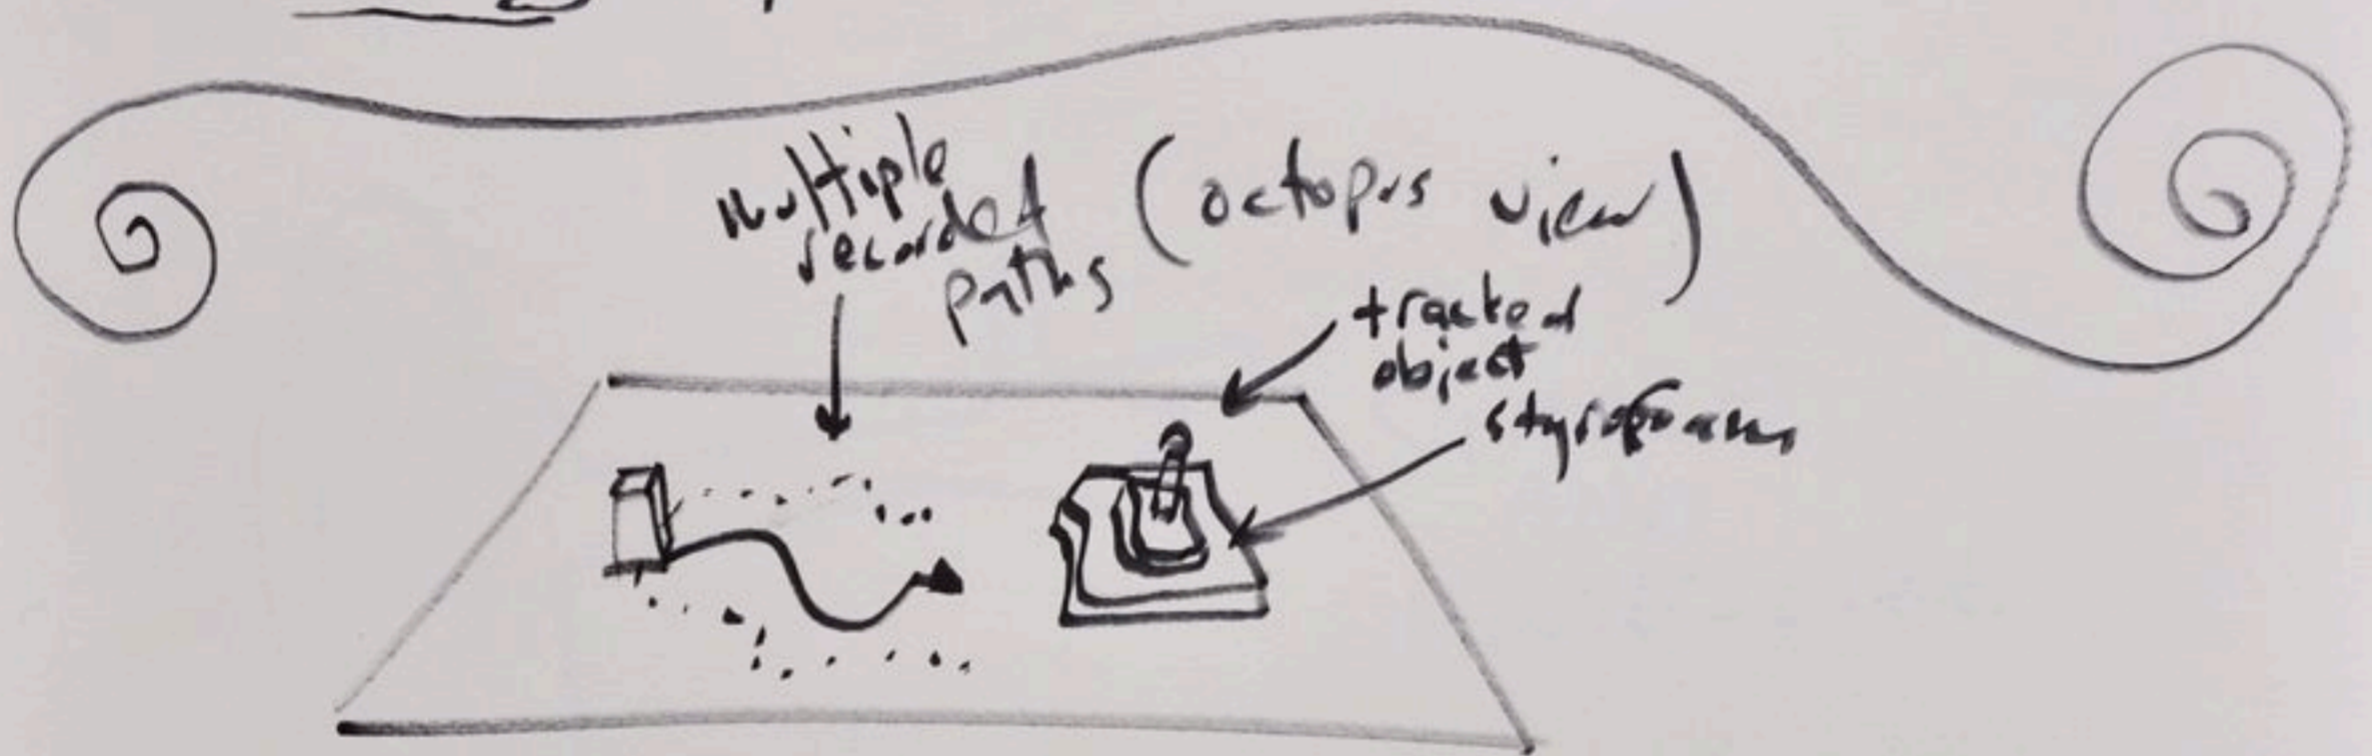 multiple
recorded
paths
(octopus view)
tracked
object
styrofoam